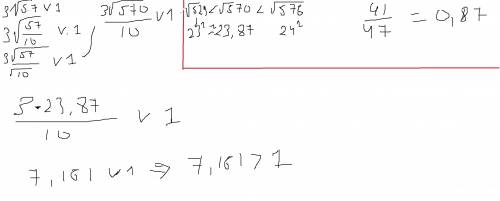 3√57 v 1
3√57/10 v 1
3√57/√10 v 1
3√570/10 v 1
√529 < √570 < √576
23² ≈ 23,87 24²
41/47 = 0,87
3·23,87/10 v 1
7,161 v 1 ⇒ 7,161 > 1